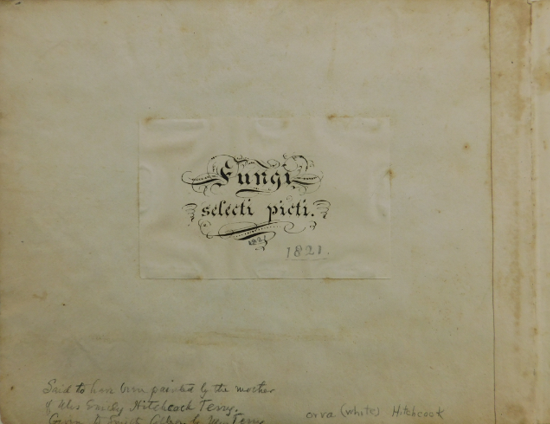 Fungi
selecti picti.
1821
1821.
Said to have been painted by the mother
of Mrs Emily Hitchcock Terry.
Given to Smith College by Mrs Terry
orra (white) Hitchcock